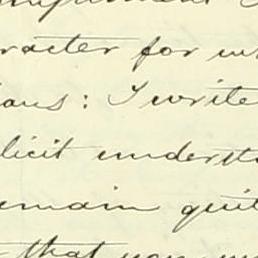 racter for
ians: I write
licit underst
emain quit
that you